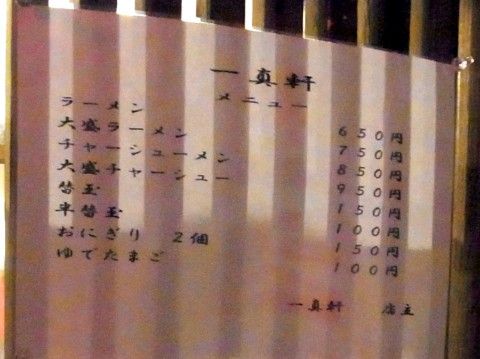 一真軒
メニュー
ラーメン 650円
大盛ラーメン 750円
チャーシューメン 850円
大盛チャーシュー 950円
替玉 150円
半替玉 100円
おにぎり 2個 150円
ゆでたまご 100円
一真軒 店主